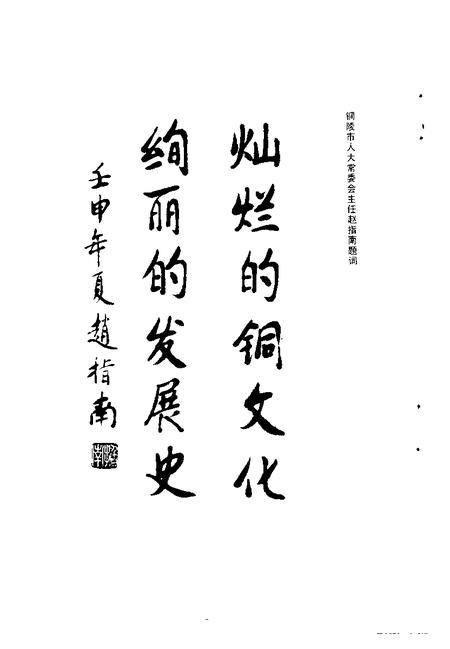 铜陵市人大常委会主任赵指南题词
灿烂的铜文化
绚丽的发展史
壬申年夏趙指南